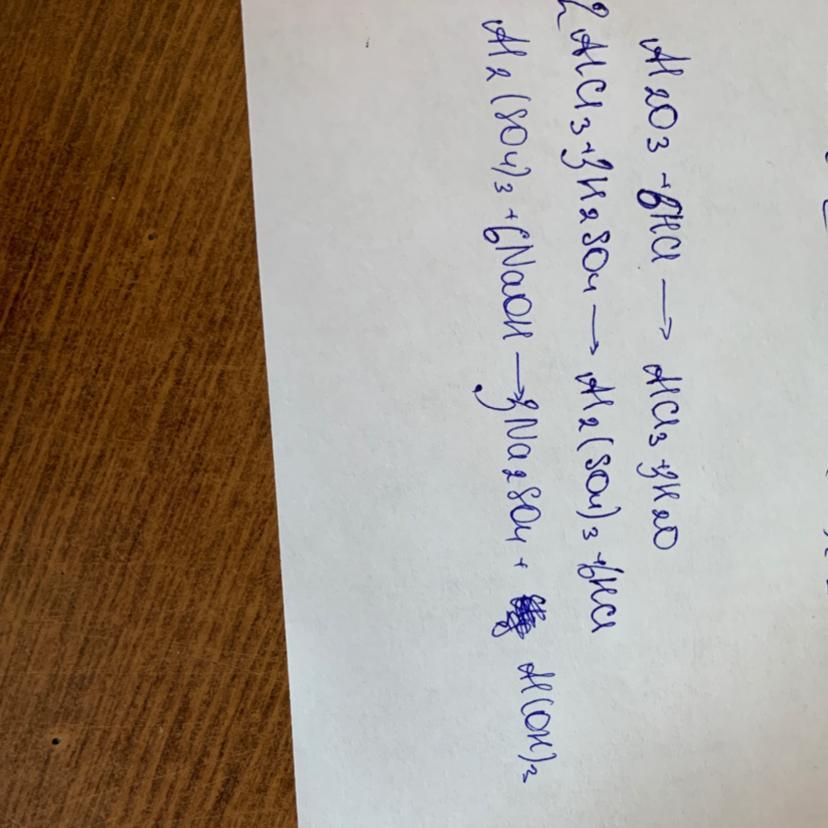 Al2O3 + 6HCl → AlCl3 + 3H2O
2AlCl3 + 3H2SO4 → Al2(SO4)3 + 6HCl
Al2(SO4)3 + 6NaOH → 3Na2SO4 + Al(OH)3